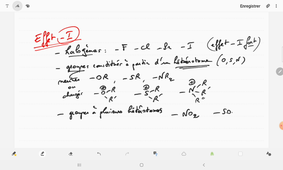 Enregistrer
Effet -I
- halogènes : -F -Cl -Br -I (effet -I fort)
- groupes constitués à partir d'un hétéroatome (O, S, N)
neutres -OR, -SR, -NR₂
ou
chargés -O⊕ R R' -S⊕ R R' -N⊕ R R' R''
- groupes à plusieurs hétéroatomes -NO₂ -SO